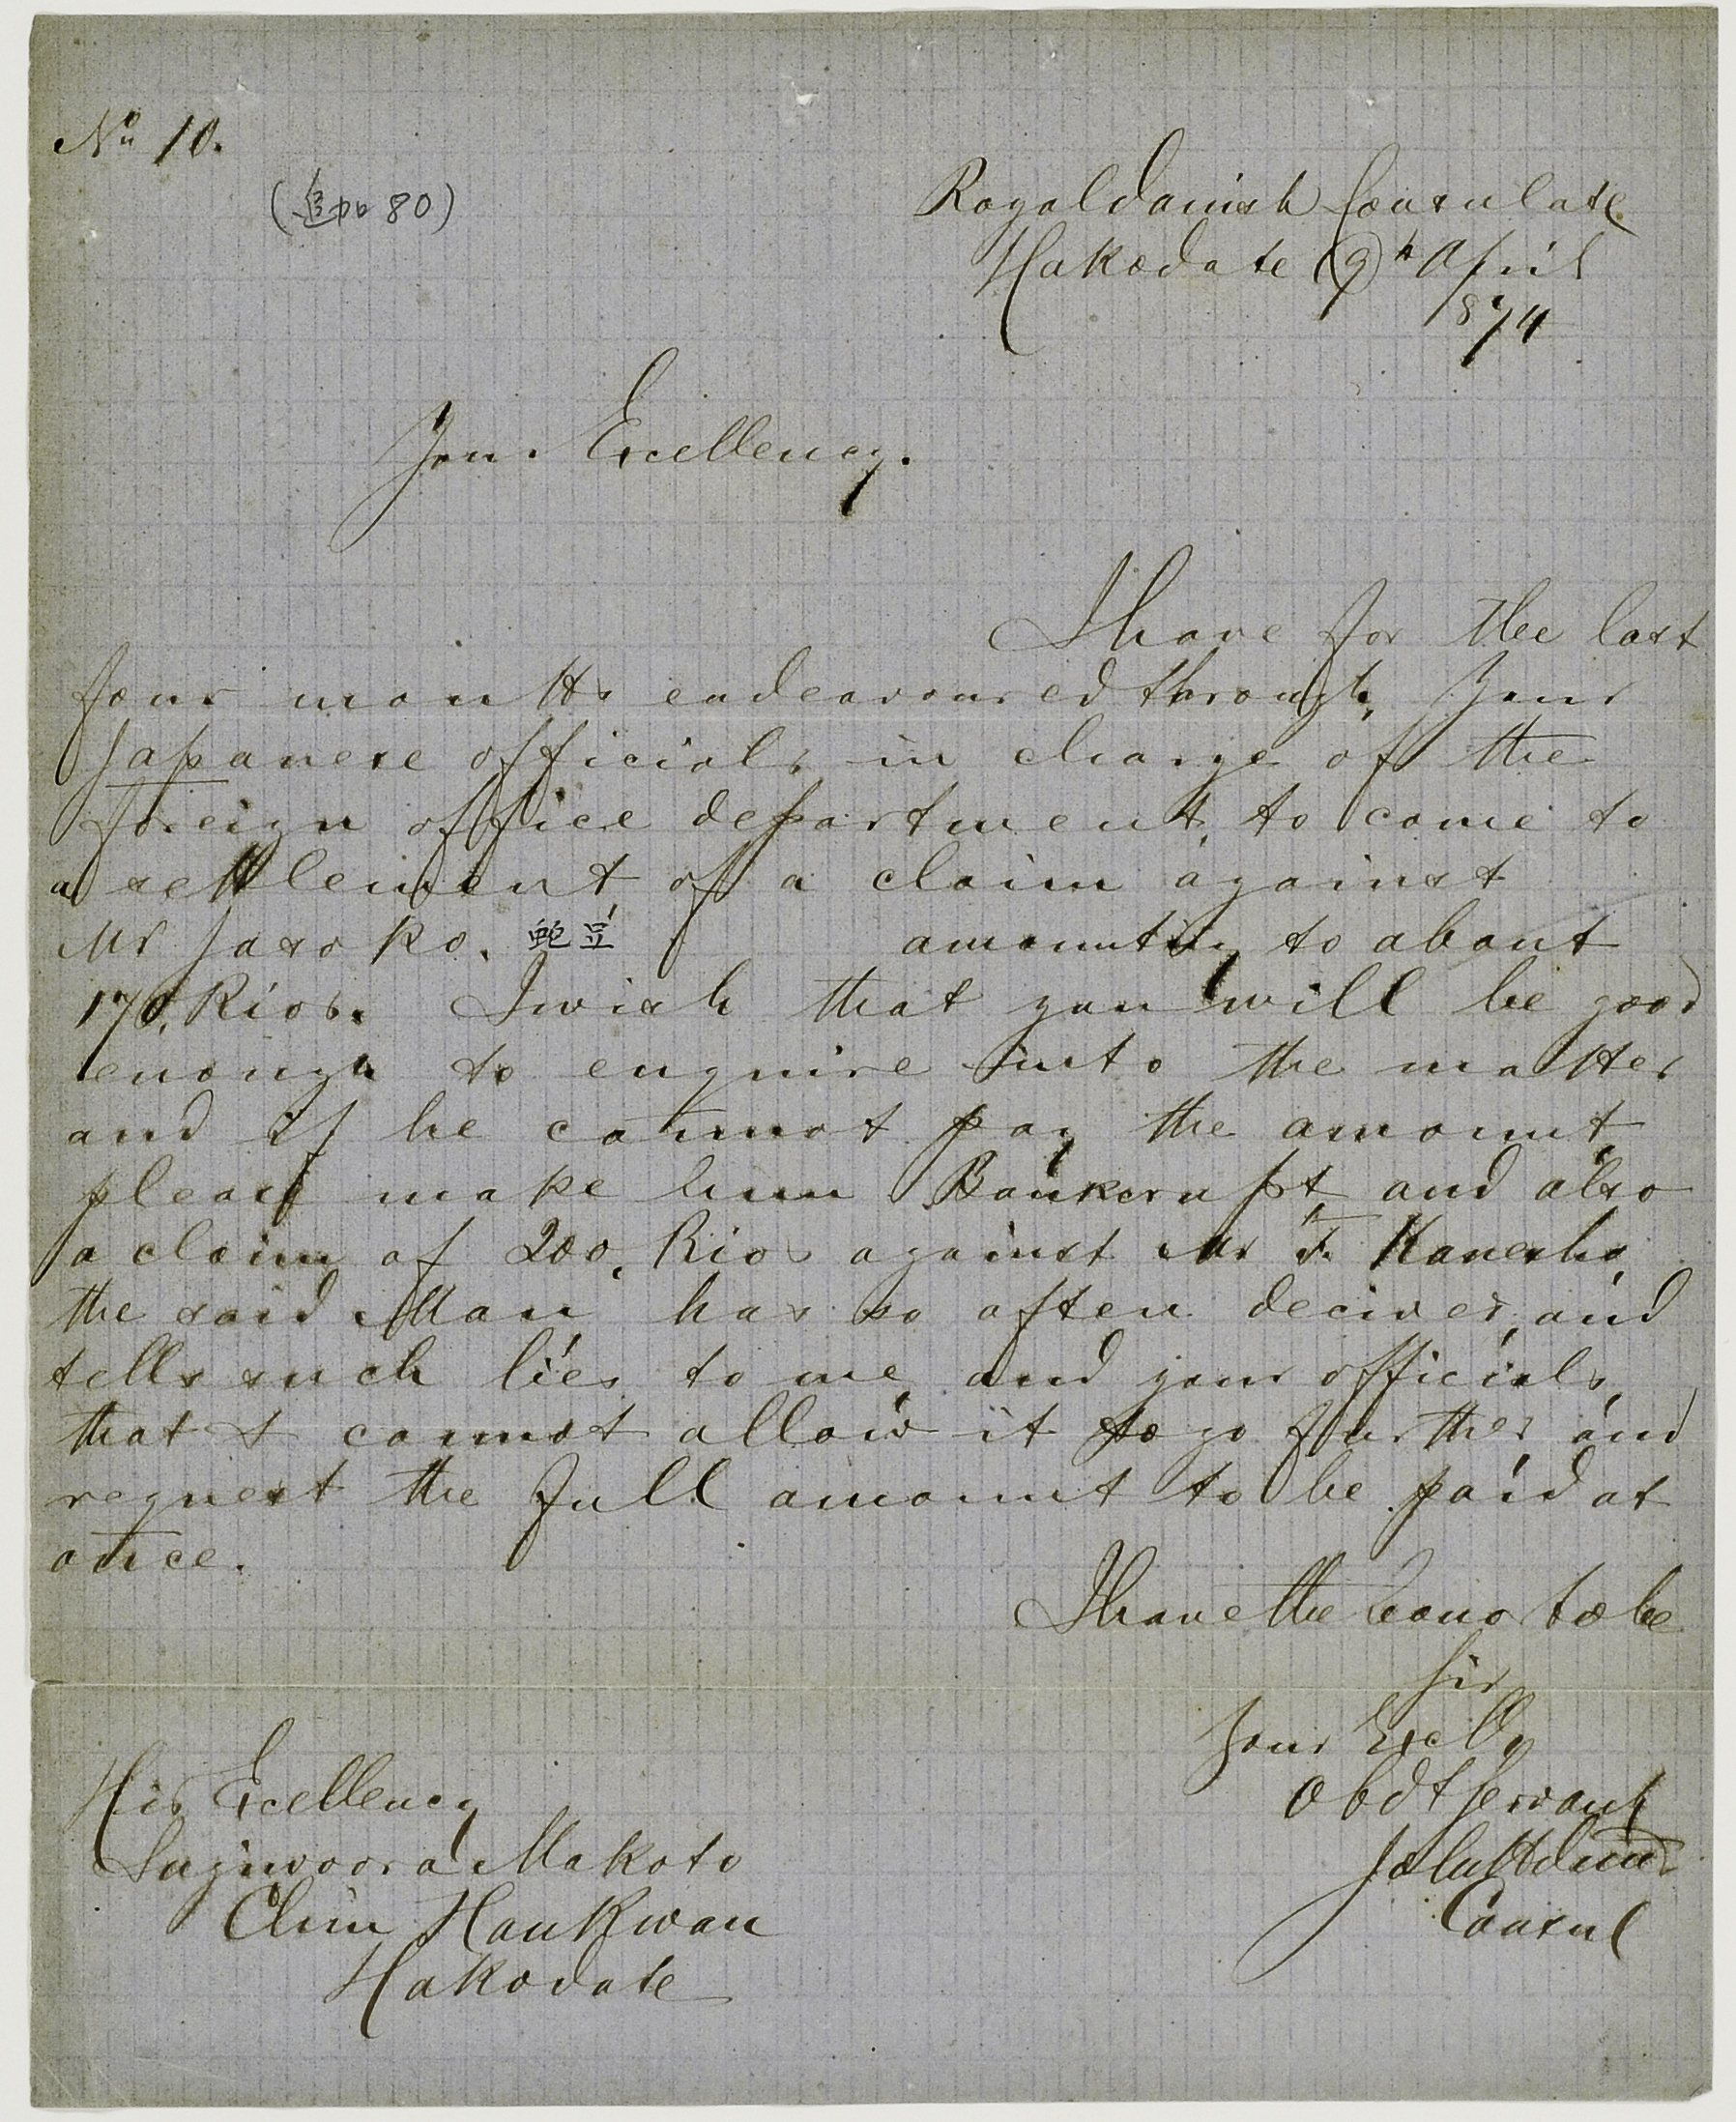 No 10.
(追加80)
Royal danish Consulate
Hakodate 9th April
1874
Your Excellency.
I have for the last
four months endeavoured through, Your
Japanese officials in charge of the
foreign office department, to come to
a settlement of a claim against
Mr Jaso Ko. amounting to about
170, Rios. I wish that you will be good
enough to enquire into the matter
and if he cannot pay the amount,
please make him Bankerupt, and also
a claim of 200, Rios against Mr F. Kanesho,
the said Man has so often decived, and
tells such lies to me and your officials,
that I cannot allow it to go further, and
request the full amount to be paid at
once.
I have the honor to be
Sir
Your Exclly
Obdt Servant
John H Duus
Consul
His Excellency
Suginoora Makoto
Chiu Hankwan
Hakodate